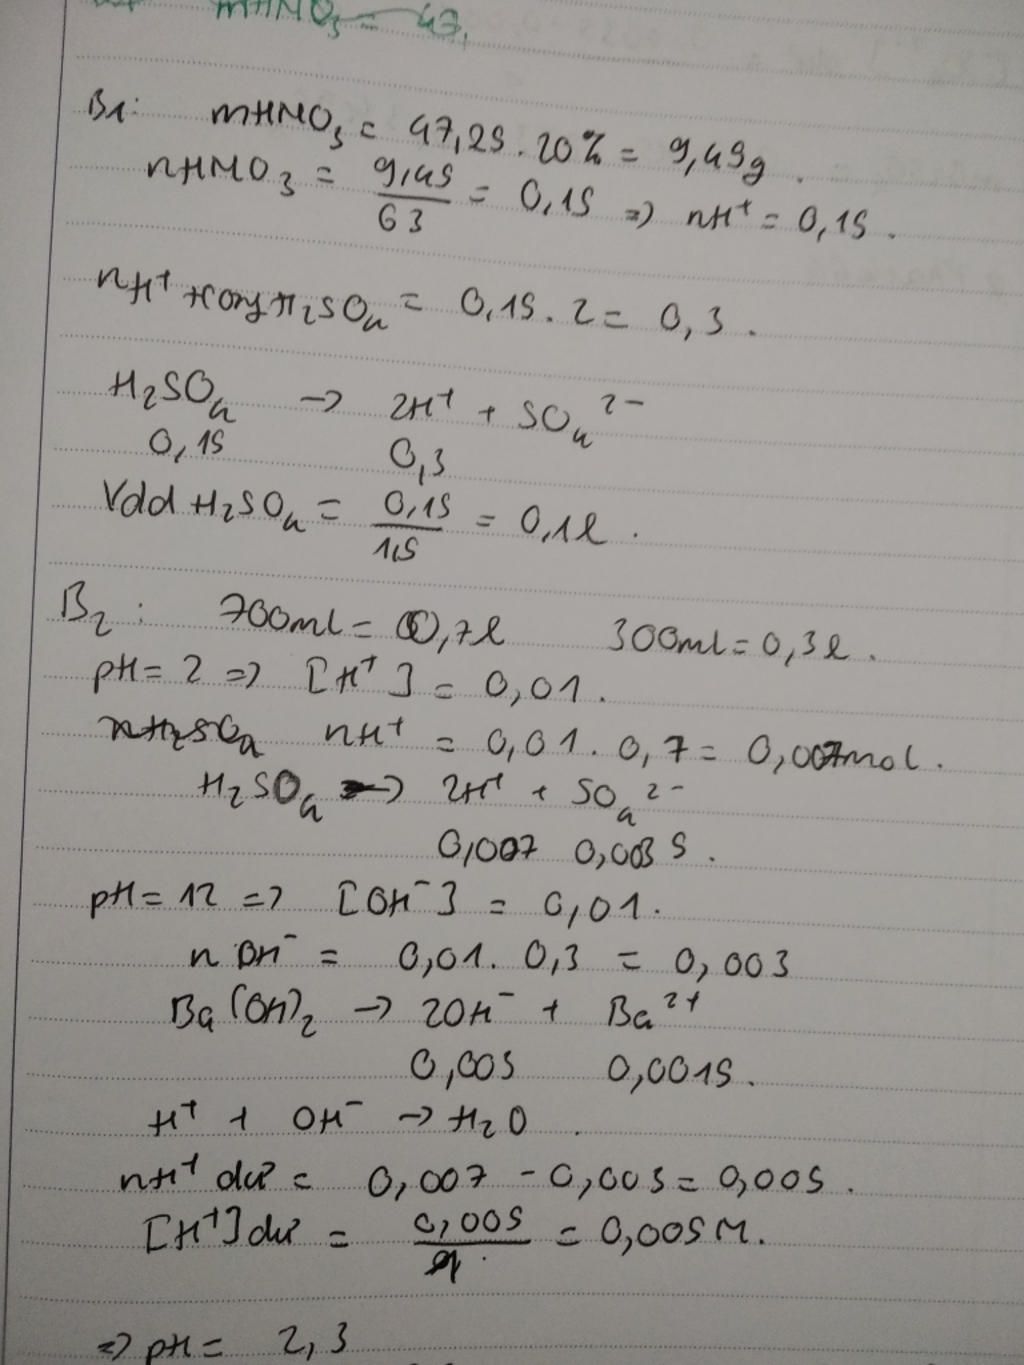 mHNO3 = 47,
B1: mHNO3 = 47,25 . 20% = 9,45g .
nHNO3 = 9,45/63 = 0,15 => nH+ = 0,15 .
nH+ trong H2SO4 = 0,15 . 2 = 0,3 .
H2SO4 -> 2H+ + SO4 2-
0,15 0,3
Vdd H2SO4 = 0,15/1,5 = 0,1l .
B2 : 700ml = 0,7l 300ml = 0,3l .
pH = 2 => [H+] = 0,01 .
nH2SO4 nH+ = 0,01 . 0,7 = 0,007mol .
H2SO4 -> 2H+ + SO4 2-
0,007 0,0035 .
pH = 12 => [OH-] = 0,01 .
nOH- = 0,01 . 0,3 = 0,003
Ba(OH)2 -> 2OH- + Ba2+
0,003 0,0015 .
H+ + OH- -> H2O .
nH+ dư = 0,007 - 0,003 = 0,005 .
[H+] dư = 0,005/1 = 0,005M .
=> pH = 2,3